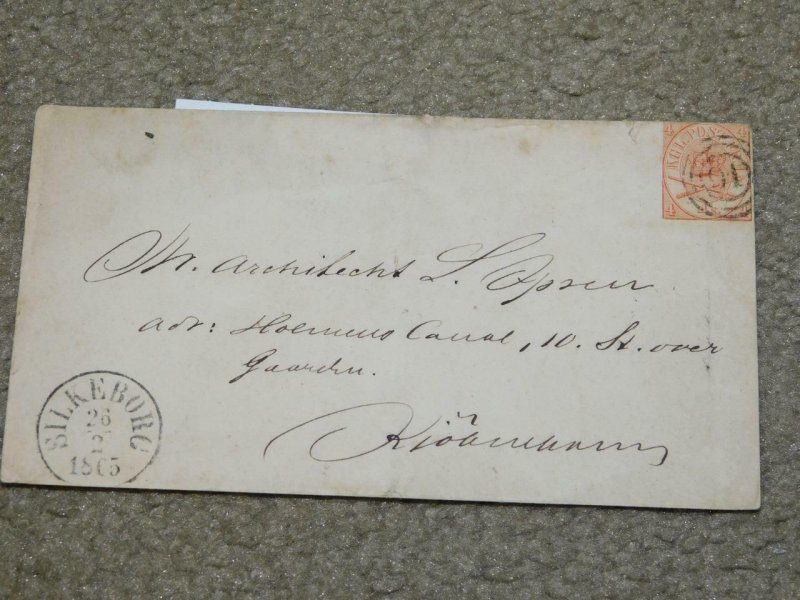 4 KGL POST 4
51
Hr. Architecht L.
adr: Holmens Canal, 10. St. over
Gaarden.
Kjöbenhavn
SILKEBORG
26
2
1865